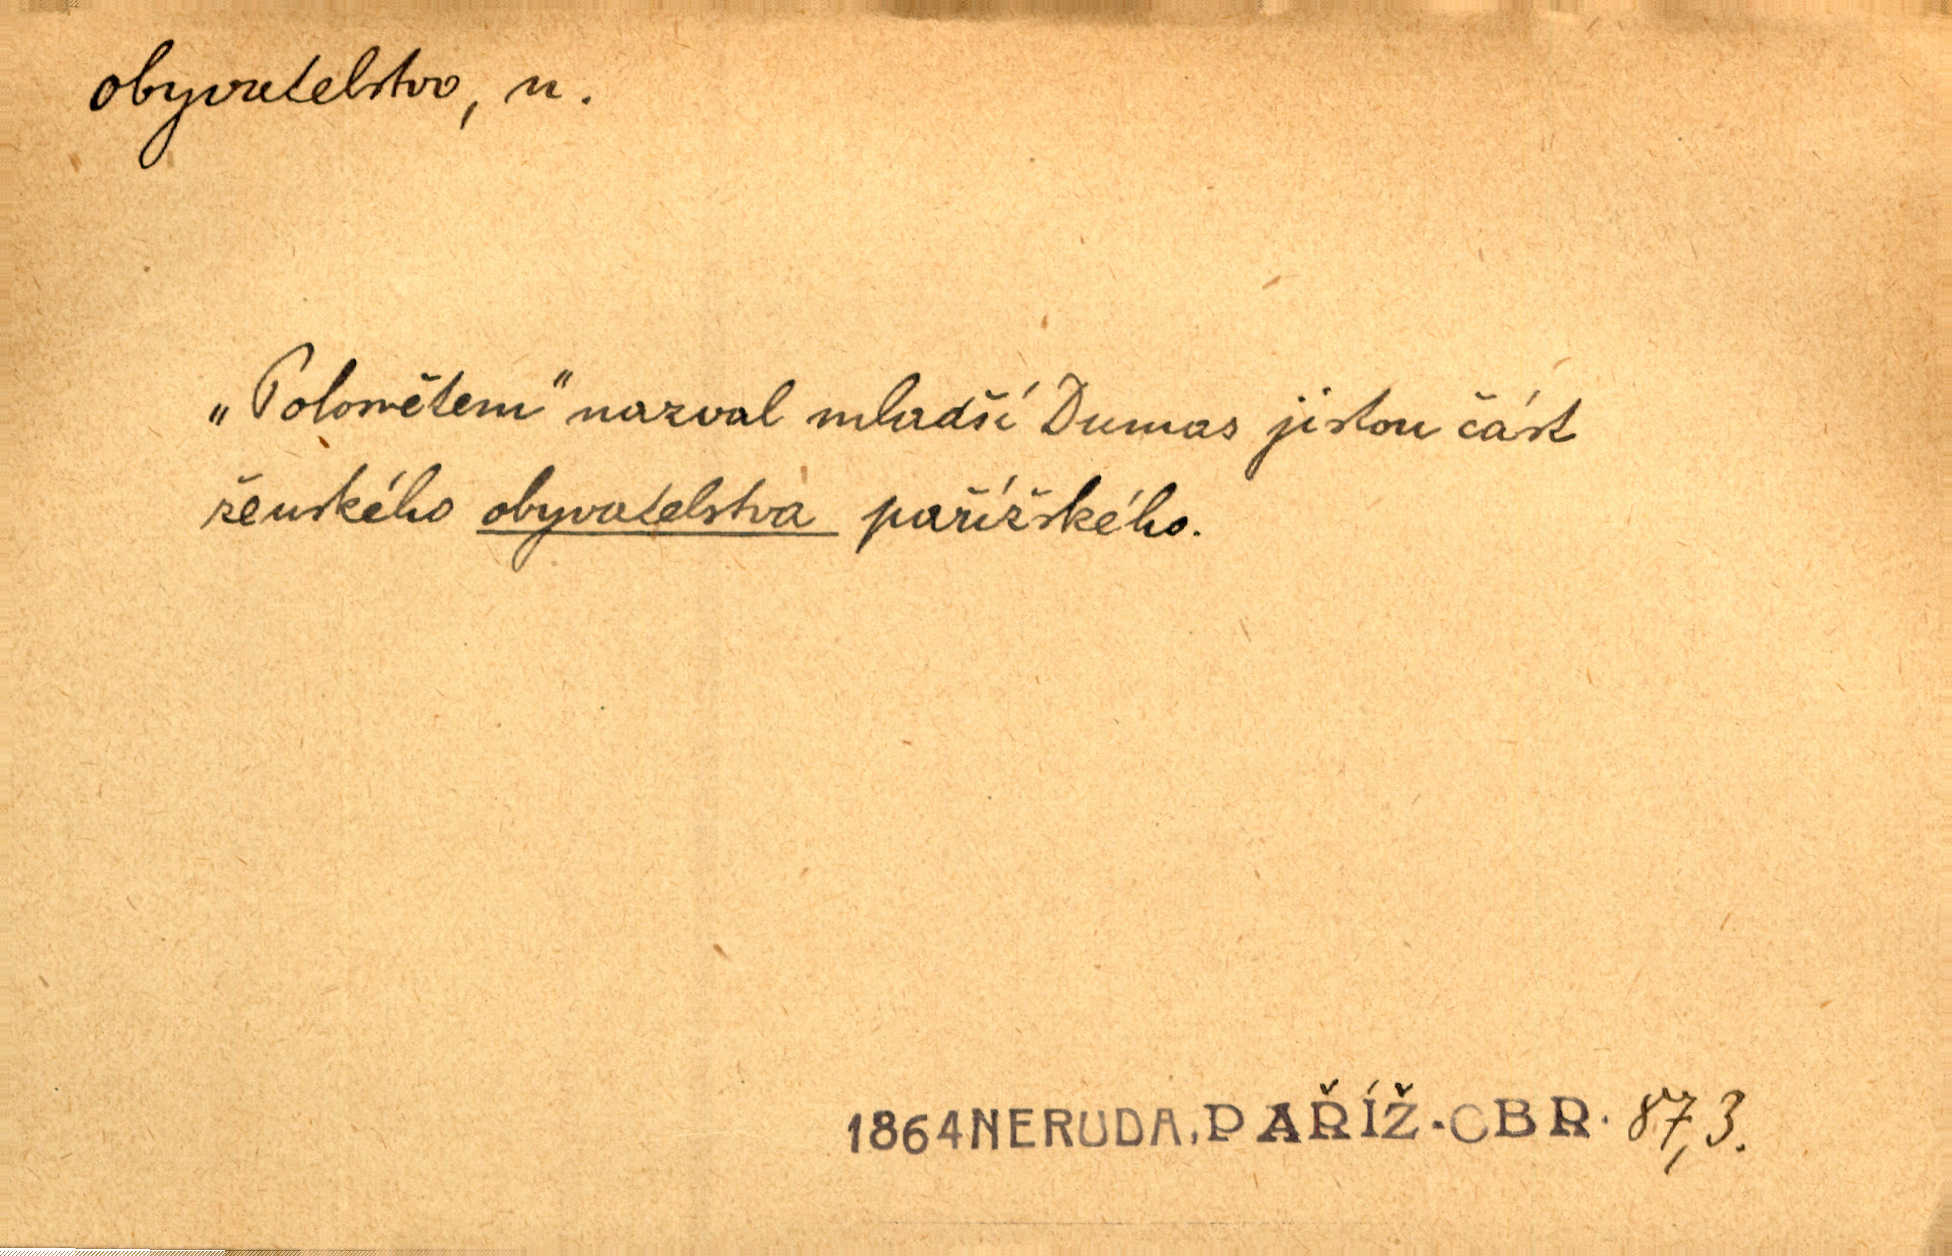 obyvatelstvo, n.
„Polosvětem" nazval mladší Dumas jistou část
ženského obyvatelstva pařížského.
1864 NERUDA, PAŘÍŽ. OBR. 87,3.